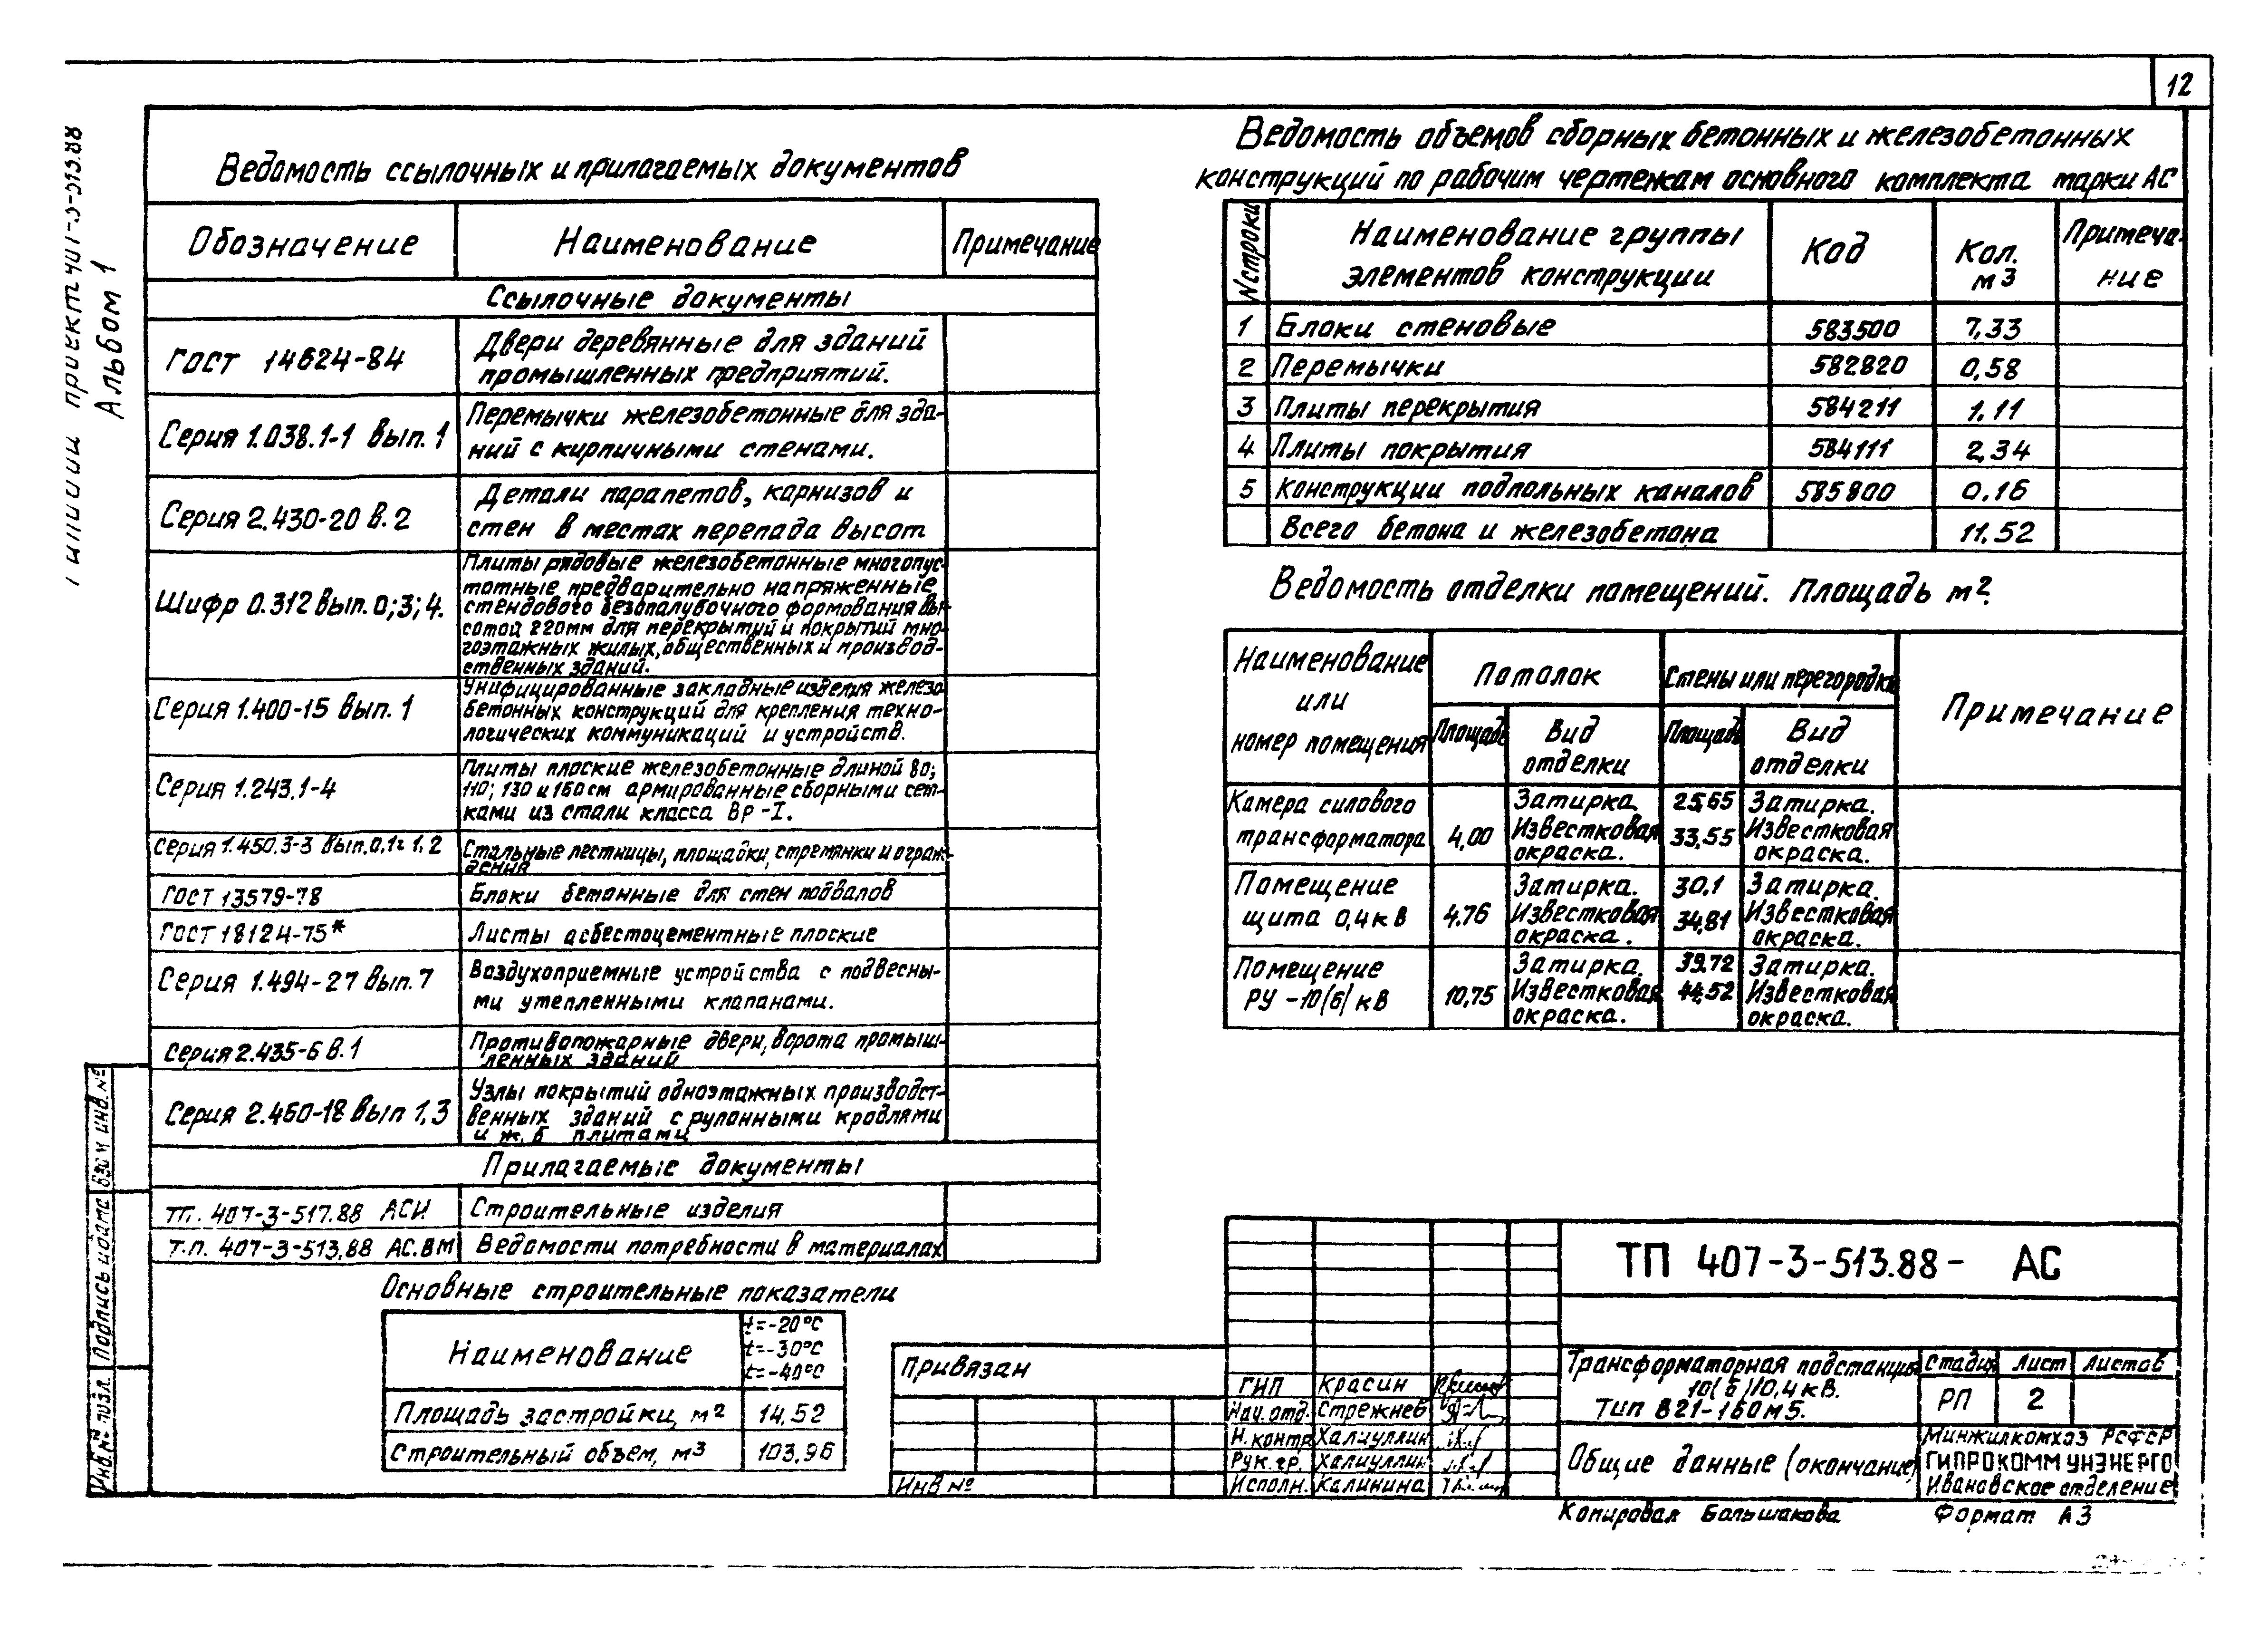 12
Альбом 1
Ведомость ссылочных и прилагаемых документов
Обозначение Наименование Примечание
Ссылочные документы
ГОСТ 14624-84 Двери деревянные для зданий
промышленных предприятий.
Серия 1.038.1-1 вып. 1 Перемычки железобетонные для зда-
ний с кирпичными стенами.
Серия 2.430-20 в.2 Детали парапетов, карнизов и
стен в местах перепада высот
Шифр 0.312 вып. 0;3;4. Плиты рядовые железобетонные многопус-
тотные предварительно напряженные
стендового безопалубочного формования вы-
сотой 220мм для перекрытий и покрытий мно-
гоэтажных жилых, общественных и производ-
ственных зданий.
Серия 1.400-15 вып. 1 Унифицированные закладные изделия железо-
бетонных конструкций для крепления техно-
логических коммуникаций и устройств.
Серия 1.243.1-4 Плиты плоские железобетонные длиной 80;
110; 130 и 160см армированные сборными сет-
ками из стали класса Вр-I.
Серия 1.450.3-3 вып. 0,1ч 1,2 Стальные лестницы, площадки, стремянки и ограж-
дения
ГОСТ 13579-78 Блоки бетонные для стен подвалов
ГОСТ 18124-75* Листы асбестоцементные плоские
Серия 1.494-27 вып. 7 Воздухоприемные устройства с подвесны-
ми утепленными клапанами.
Серия 2.435-6 в.1 Противопожарные двери, ворота промыш-
ленных зданий
Серия 2.460-18 вып 1,3 Узлы покрытий одноэтажных производст-
венных зданий с рулонными кровлями
и ж.б плитами
Прилагаемые документы
тп. 407-3-517.88 АСИ Строительные изделия
т.п. 407-3-513.88 АС.ВМ Ведомости потребности в материалах
Основные строительные показатели
Наименование t=-20°С
t=-30°С
t=-40°С
Площадь застройки, м2 14,52
Строительный объем, м3 103,96
Ведомость объемов сборных бетонных и железобетонных
конструкций по рабочим чертежам основного комплекта марки АС
N строки Наименование группы элементов конструкции Код Кол. м3 Примеча-ние
1 Блоки стеновые 583500 7,33
2 Перемычки 582820 0,58
3 Плиты перекрытия 584211 1.11
4 Плиты покрытия 584111 2,34
5 Конструкции подпольных каналов 585800 0.16
Всего бетона и железобетона 11.52
Ведомость отделки помещений. Площадь м2.
Наименование или номер помещения Потолок Стены или перегородки Примечание
Площадь Вид отделки Площадь Вид отделки
Камера силового Затирка. 25,65 Затирка.
трансформатора 4,00 Известковая 33,55 Известковая
окраска. окраска.
Помещение Затирка. 30,1 Затирка.
щита 0,4кВ 4.76 Известковая 34,81 Известковая
окраска. окраска.
Помещение Затирка. 39.72 Затирка.
РУ-10(6) кВ 10,75 Известковая 44,52 Известковая
окраска. окраска.
Привязан
Инв №
ГИП Красин
Нач. отд. Стрежнев
Н. контр Халиуллин
Рук. гр. Халиуллин
Исполн. Калинина
ТП 407-3-513.88- АС
Трансформаторная подстанция
10(6)/0,4кВ.
Тип В21-160м5.
Стадия Лист Листов
РП 2
Общие данные (окончание)
Минжилкомхоз РСФСР
ГИПРОКОММУНЭНЕРГО
Ивановское отделение
Копировал Большакова Формат А3
Взам инв. №
Подпись и дата
Инв. № подл.